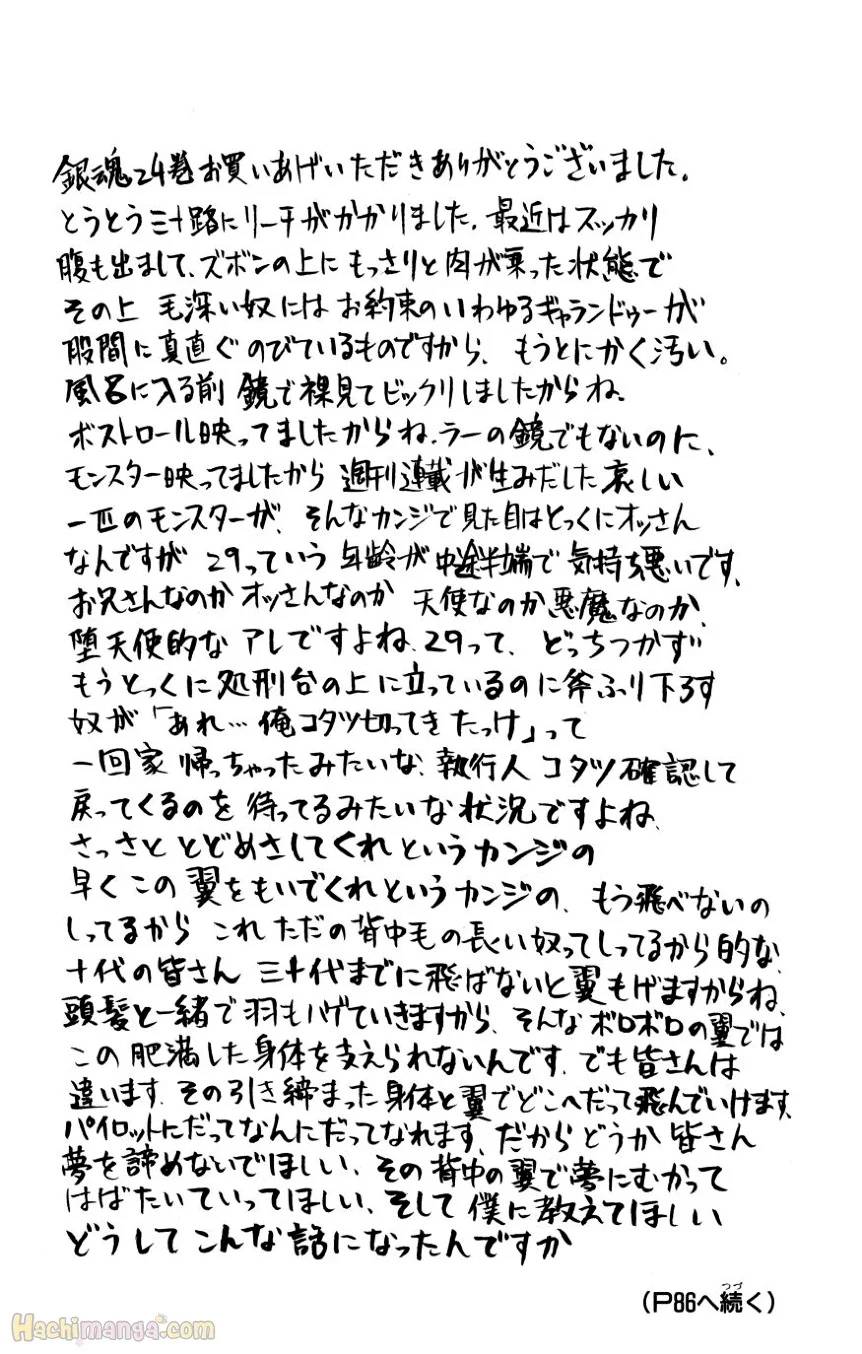 銀魂24巻お買いあげいただきありがとうございました。
とうとう三十路にリーチがかかりました。最近はスッカリ
腹も出まして、ズボンの上にもっさりと肉が乗った状態で
その上 毛深い奴にはお約束のいわゆるギャランドゥーが
股間に真直ぐのびているものですから、もうとにかく汚い。
風呂に入る前 鏡で裸見てビックリしましたからね。
ボストロール映ってましたからね。ラーの鏡でもないのに、
モンスター映ってましたから 週刊連載が生みだした哀しい
一匹のモンスターが、そんなカンジで見た目はとっくにオッさん
なんですが 29っていう 年齢が中途半端で気持ち悪いです。
お兄さんなのか オッさんなのか 天使なのか悪魔なのか、
堕天使的な アレですよね。29って、どっちつかず
もうとっくに処刑台の上に立っているのに斧ふり下ろす
奴が「あれ…俺コタツ切ってきたっけ」って
一回家 帰っちゃったみたいな、執行人 コタツ確認して
戻ってくるのを 待ってるみたいな状況ですよね、
さっさと とどめさしてくれというカンジの
早くこの翼をもいでくれというカンジの、もう飛べないの
しってるから これ ただの背中毛の長い奴ってしってるから的な、
十代の皆さん 三十代までに飛ばないと翼もげますからね、
頭髪と一緒で羽もハゲていきますから、そんなボロボロの翼では
この肥満した身体を支えられないんです。でも皆さんは
違います。その引き締まった身体と翼でどこへだって飛んでいけます。
パイロットにだってなんにだってなれます、だからどうか皆さん
夢を諦めないでほしい、その背中の翼で夢にむかって
はばたいていってほしい、そして僕に教えてほしい
どうしてこんな話になったんですか
(P86へ続く)
つづ
Hachimanga.com